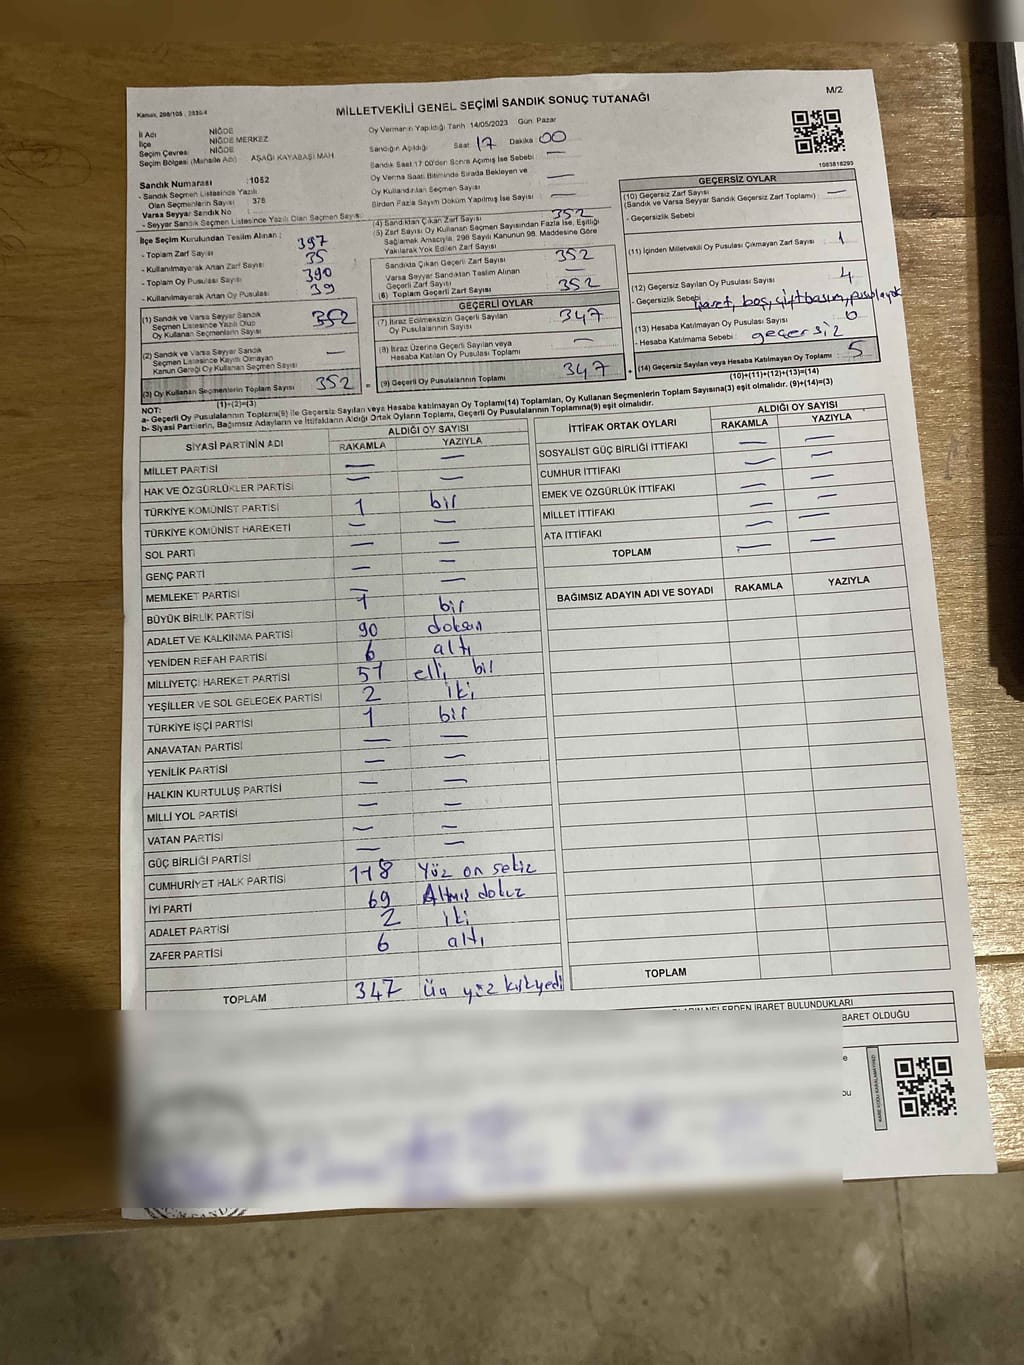 Kanun, 298/105 ; 2839/4
MİLLETVEKİLİ GENEL SEÇİMİ SANDIK SONUÇ TUTANAĞI
M/2
İl Adı NİĞDE
İlçe NİĞDE MERKEZ
Seçim Çevresi NİĞDE
Seçim Bölgesi (Mahalle Adı) AŞAĞI KAYABAŞI MAH
Sandık Numarası :1052
- Sandık Seçmen Listesinde Yazılı
Olan Seçmenlerin Sayısı 376
Varsa Seyyar Sandık No :
- Seyyar Sandık Seçmen Listesinde Yazılı Olan Seçmen Sayısı:
Oy Vermenin Yapıldığı Tarih 14/05/2023 Gün Pazar
Sandığın Açıldığı Saat 17 Dakika 00
Sandık Saat 17:00'den Sonra Açılmış İse Sebebi : —
Oy Verme Saati Bitiminde Sırada Bekleyen ve
Oy Kullandırılan Seçmen Sayısı —
Birden Fazla Sayım Döküm Yapılmış İse Sayısı : —
1083818293
İlçe Seçim Kurulundan Teslim Alınan :
- Toplam Zarf Sayısı 397
- Kullanılmayarak Artan Zarf Sayısı 35
- Toplam Oy Pusulası Sayısı 390
- Kullanılmayarak Artan Oy Pusulası : 39
(1) Sandık ve Varsa Seyyar Sandık
Seçmen Listesinde Yazılı Olup
Oy Kullanan Seçmenlerin Sayısı 352
(2) Sandık ve Varsa Seyyar Sandık
Seçmen Listesinde Kayıtlı Olmayan
Kanun Gereği Oy Kullanan Seçmen Sayısı —
(3) Oy Kullanan Seçmenlerin Toplam Sayısı 352 =
(1)+(2)=(3)
(4) Sandıktan Çıkan Zarf Sayısı 352
(5) Zarf Sayısı Oy Kullanan Seçmen Sayısından Fazla İse, Eşitliği
Sağlamak Amacıyla, 298 Sayılı Kanunun 98. Maddesine Göre
Yakılarak Yok Edilen Zarf Sayısı
Sandıkta Çıkan Geçerli Zarf Sayısı 352
Varsa Seyyar Sandıktan Teslim Alınan
Geçerli Zarf Sayısı —
(6) Toplam Geçerli Zarf Sayısı 352
GEÇERLİ OYLAR
(7) İtiraz Edilmeksizin Geçerli Sayılan
Oy Pusulalarının Sayısı 347
(8) İtiraz Üzerine Geçerli Sayılan veya
Hesaba Katılan Oy Pusulası Toplamı —
(9) Geçerli Oy Pusulalarının Toplamı 347 +
GEÇERSİZ OYLAR
(10) Geçersiz Zarf Sayısı
(Sandık ve Varsa Seyyar Sandık Geçersiz Zarf Toplamı) —
- Geçersizlik Sebebi
(11) İçinden Milletvekili Oy Pusulası Çıkmayan Zarf Sayısı 1
(12) Geçersiz Sayılan Oy Pusulası Sayısı 4
- Geçersizlik Sebebi işaret, boş, çift basım,
(13) Hesaba Katılmayan Oy Pusulası Sayısı : 0
- Hesaba Katılmama Sebebi : geçersiz
(14) Geçersiz Sayılan veya Hesaba Katılmayan Oy Toplamı : 5
(10)+(11)+(12)+(13)=(14)
NOT:
a- Geçerli Oy Pusulalarının Toplamı(9) ile Geçersiz Sayılan veya Hesaba katılmayan Oy Toplamı(14) Toplamları, Oy Kullanan Seçmenlerin Toplam Sayısına(3) eşit olmalıdır. (9)+(14)=(3)
b- Siyasi Partilerin, Bağımsız Adayların ve İttifakların Aldığı Ortak Oyların Toplamı, Geçerli Oy Pusulalarının Toplamına(9) eşit olmalıdır.
SİYASİ PARTİNİN ADI ALDIĞI OY SAYISI
RAKAMLA YAZIYLA
MİLLET PARTİSİ — —
HAK VE ÖZGÜRLÜKLER PARTİSİ — —
TÜRKİYE KOMÜNİST PARTİSİ 1 bir
TÜRKİYE KOMÜNİST HAREKETİ — —
SOL PARTİ — —
GENÇ PARTİ — —
MEMLEKET PARTİSİ — —
BÜYÜK BİRLİK PARTİSİ 1 bir
ADALET VE KALKINMA PARTİSİ 90 doksan
YENİDEN REFAH PARTİSİ 6 altı
MİLLİYETÇİ HAREKET PARTİSİ 51 elli bir
YEŞİLLER VE SOL GELECEK PARTİSİ 2 iki
TÜRKİYE İŞÇİ PARTİSİ 1 bir
ANAVATAN PARTİSİ — —
YENİLİK PARTİSİ — —
HALKIN KURTULUŞ PARTİSİ — —
MİLLİ YOL PARTİSİ — —
VATAN PARTİSİ — —
GÜÇ BİRLİĞİ PARTİSİ — —
CUMHURİYET HALK PARTİSİ 118 Yüz on sekiz
İYİ PARTİ 69 Altmış dokuz
ADALET PARTİSİ 2 iki
ZAFER PARTİSİ 6 altı
TOPLAM 347 Üç yüz kırk yedi
İTTİFAK ORTAK OYLARI ALDIĞI OY SAYISI
RAKAMLA YAZIYLA
SOSYALİST GÜÇ BİRLİĞİ İTTİFAKI — —
CUMHUR İTTİFAKI — —
EMEK VE ÖZGÜRLÜK İTTİFAKI — —
MİLLET İTTİFAKI — —
ATA İTTİFAKI — —
TOPLAM — —
BAĞIMSIZ ADAYIN ADI VE SOYADI RAKAMLA YAZIYLA
TOPLAM
NELERDEN İBARET BULUNDUKLARI
İBARET OLDUĞU